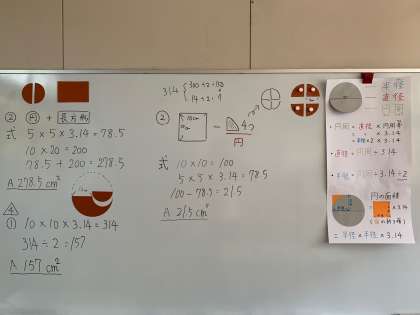 ② 円 + 長方形
式 5×5×3.14=78.5
10×20=200
78.5+200=278.5
A.278.5cm²
④
① 10×10×3.14=314
314÷2=157
A 157cm²
314
300÷2=150
14÷2=7
②
10cm
円
式 10×10=100
5×5×3.14=78.5
100-78.5=21.5
A 21.5cm²
半径
直径
・円周=直径×円周率
×3.14
半径×2×3.14
・直径=円周÷3.14
・半径=円周÷3.14÷2
円の面積
×3.14
=半径×半径×3.14